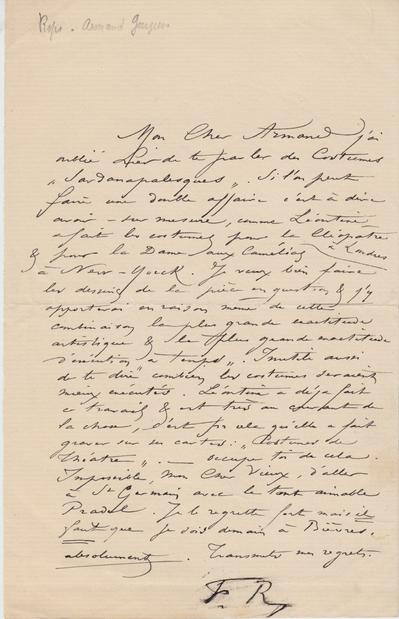 Rops. Armand Gouzien
Mon Cher Armand j'ai
oublié hier de te parler des Costumes
„Sardanapalesques„. Si l'on peut
faire une double affaire c'est à dire
avoir – sur mesure, comme Léontine
a fait les costumes pour la Cléopatre
à Londres
& pour la Dame aux Camélias
à New-Yorck. Je veux bien faire
les dessins de la pièce en question & j'y
apporterai en raison même de cette
combinaison la plus grande exactitude
artistique & la plus grande exactitude
d'exécution „à temps„. Inutile aussi
de te dire combien les costumes seraient
mieux exécutés. Léontine a déja fait
ce travail & est très au courant de
la chose, c'est pr cela qu'elle a fait
graver sur ses cartes: „Costumes de
théâtre„. — occupe toi de cela.
Impossible, mon Cher Vieux, d'aller
à St Germain avec le tout aimable
Pradel. Je le regrette fort mais il
faut que je sois demain à Bièvres,
absolument. Transmets mes regrets.
F. R.